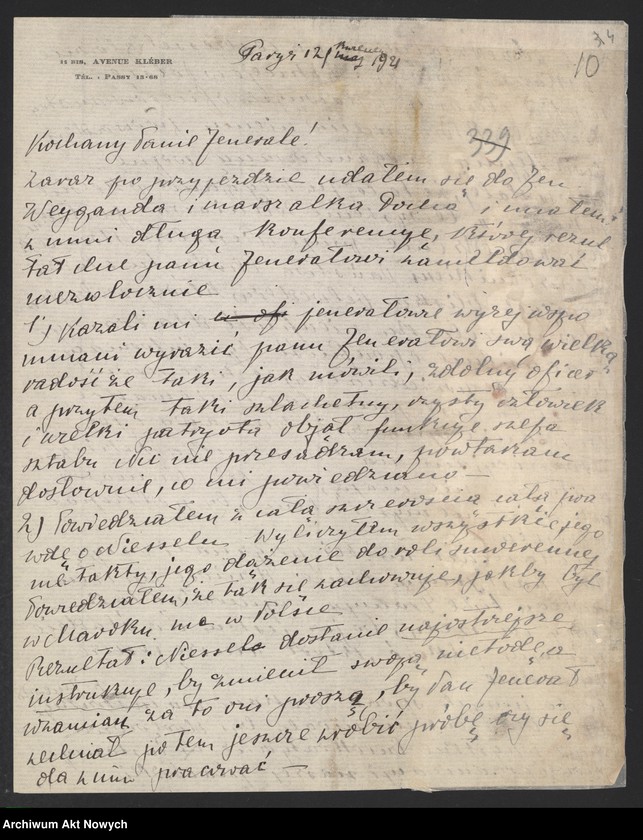 34
10
11 BIS, AVENUE KLÉBER
TÉL. : PASSY 15-66
Paryż 12/ 1921
339
Kochany Panie Jenerale!
Zaraz po przyjeździe udałem się do Jen
Weyganda i marszałka Focha i miałem
z nimi długą konferencyę, której rezul
tat chcę panu Jenerałowi zameldować
niezwłocznie
1) Kazali mi jenerałowie wyżej wspo
mniani wyrazić panu Jenerałowi swą wielką
radość że taki, jak mówili, zdolny oficer
a przytem taki szlachetny, czysty człowiek
i wielki patryota objął funkcye szefa
sztabu Nic nie przesadzam, powtarzam
dosłownie, co mi powiedziano —
2) Powiedziałem z całą szczerością całą pra
wdę o Niesselu Wyliczyłem wszystkie jego
nietakty, jego dążenie do roli suwerennej
Powiedziałem, że tak się zachowuje, jakby był
w Maroku nie w Polsce
Rezultat: Niessel dostanie najostrzejsze
instrukcye, by zmienił swoją metodę a
wzamian za to oni proszą, by Pan Jenerał
zechciał potem jeszcze zrobić próbę czy się
da z nim pracować —
Archiwum Akt Nowych